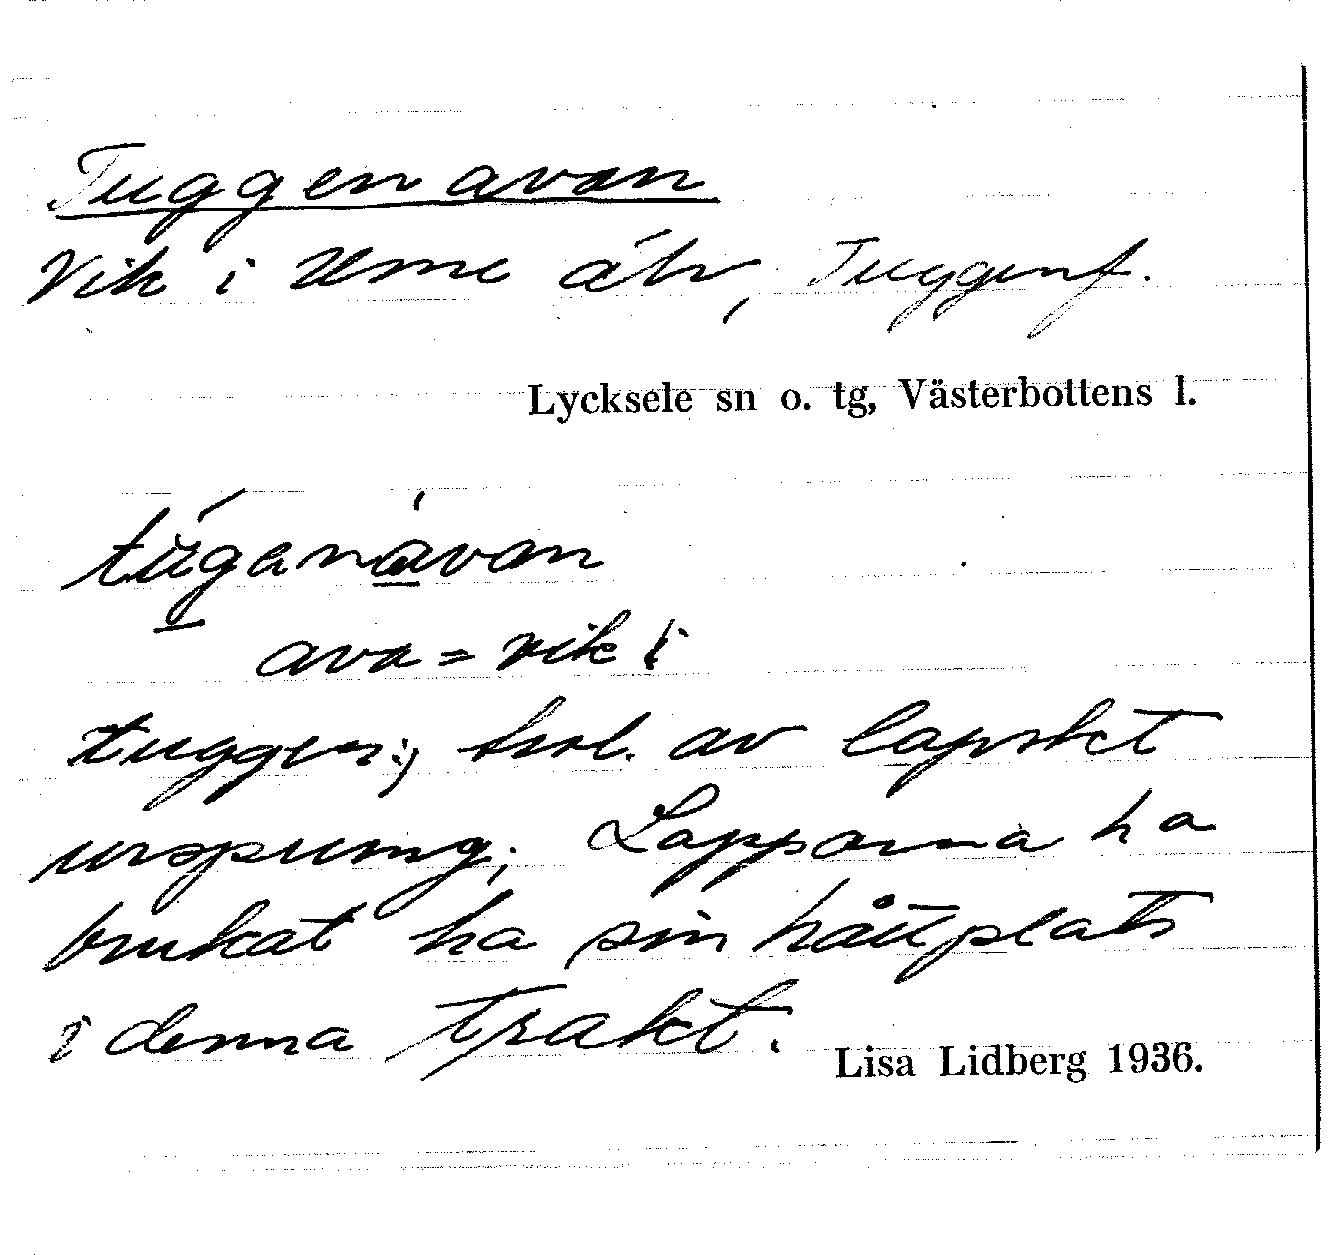 Tuggenavan
Vik i Ume älv, Tuggenf.
Lycksele sn o. tg, Västerbottens l.
tuganavan
ava = vik i
tuggen; trol. av lapskt
ursprung. Lapparna ha
brukat ha sin hållplats
i denna trakt.
Lisa Lidberg 1936.